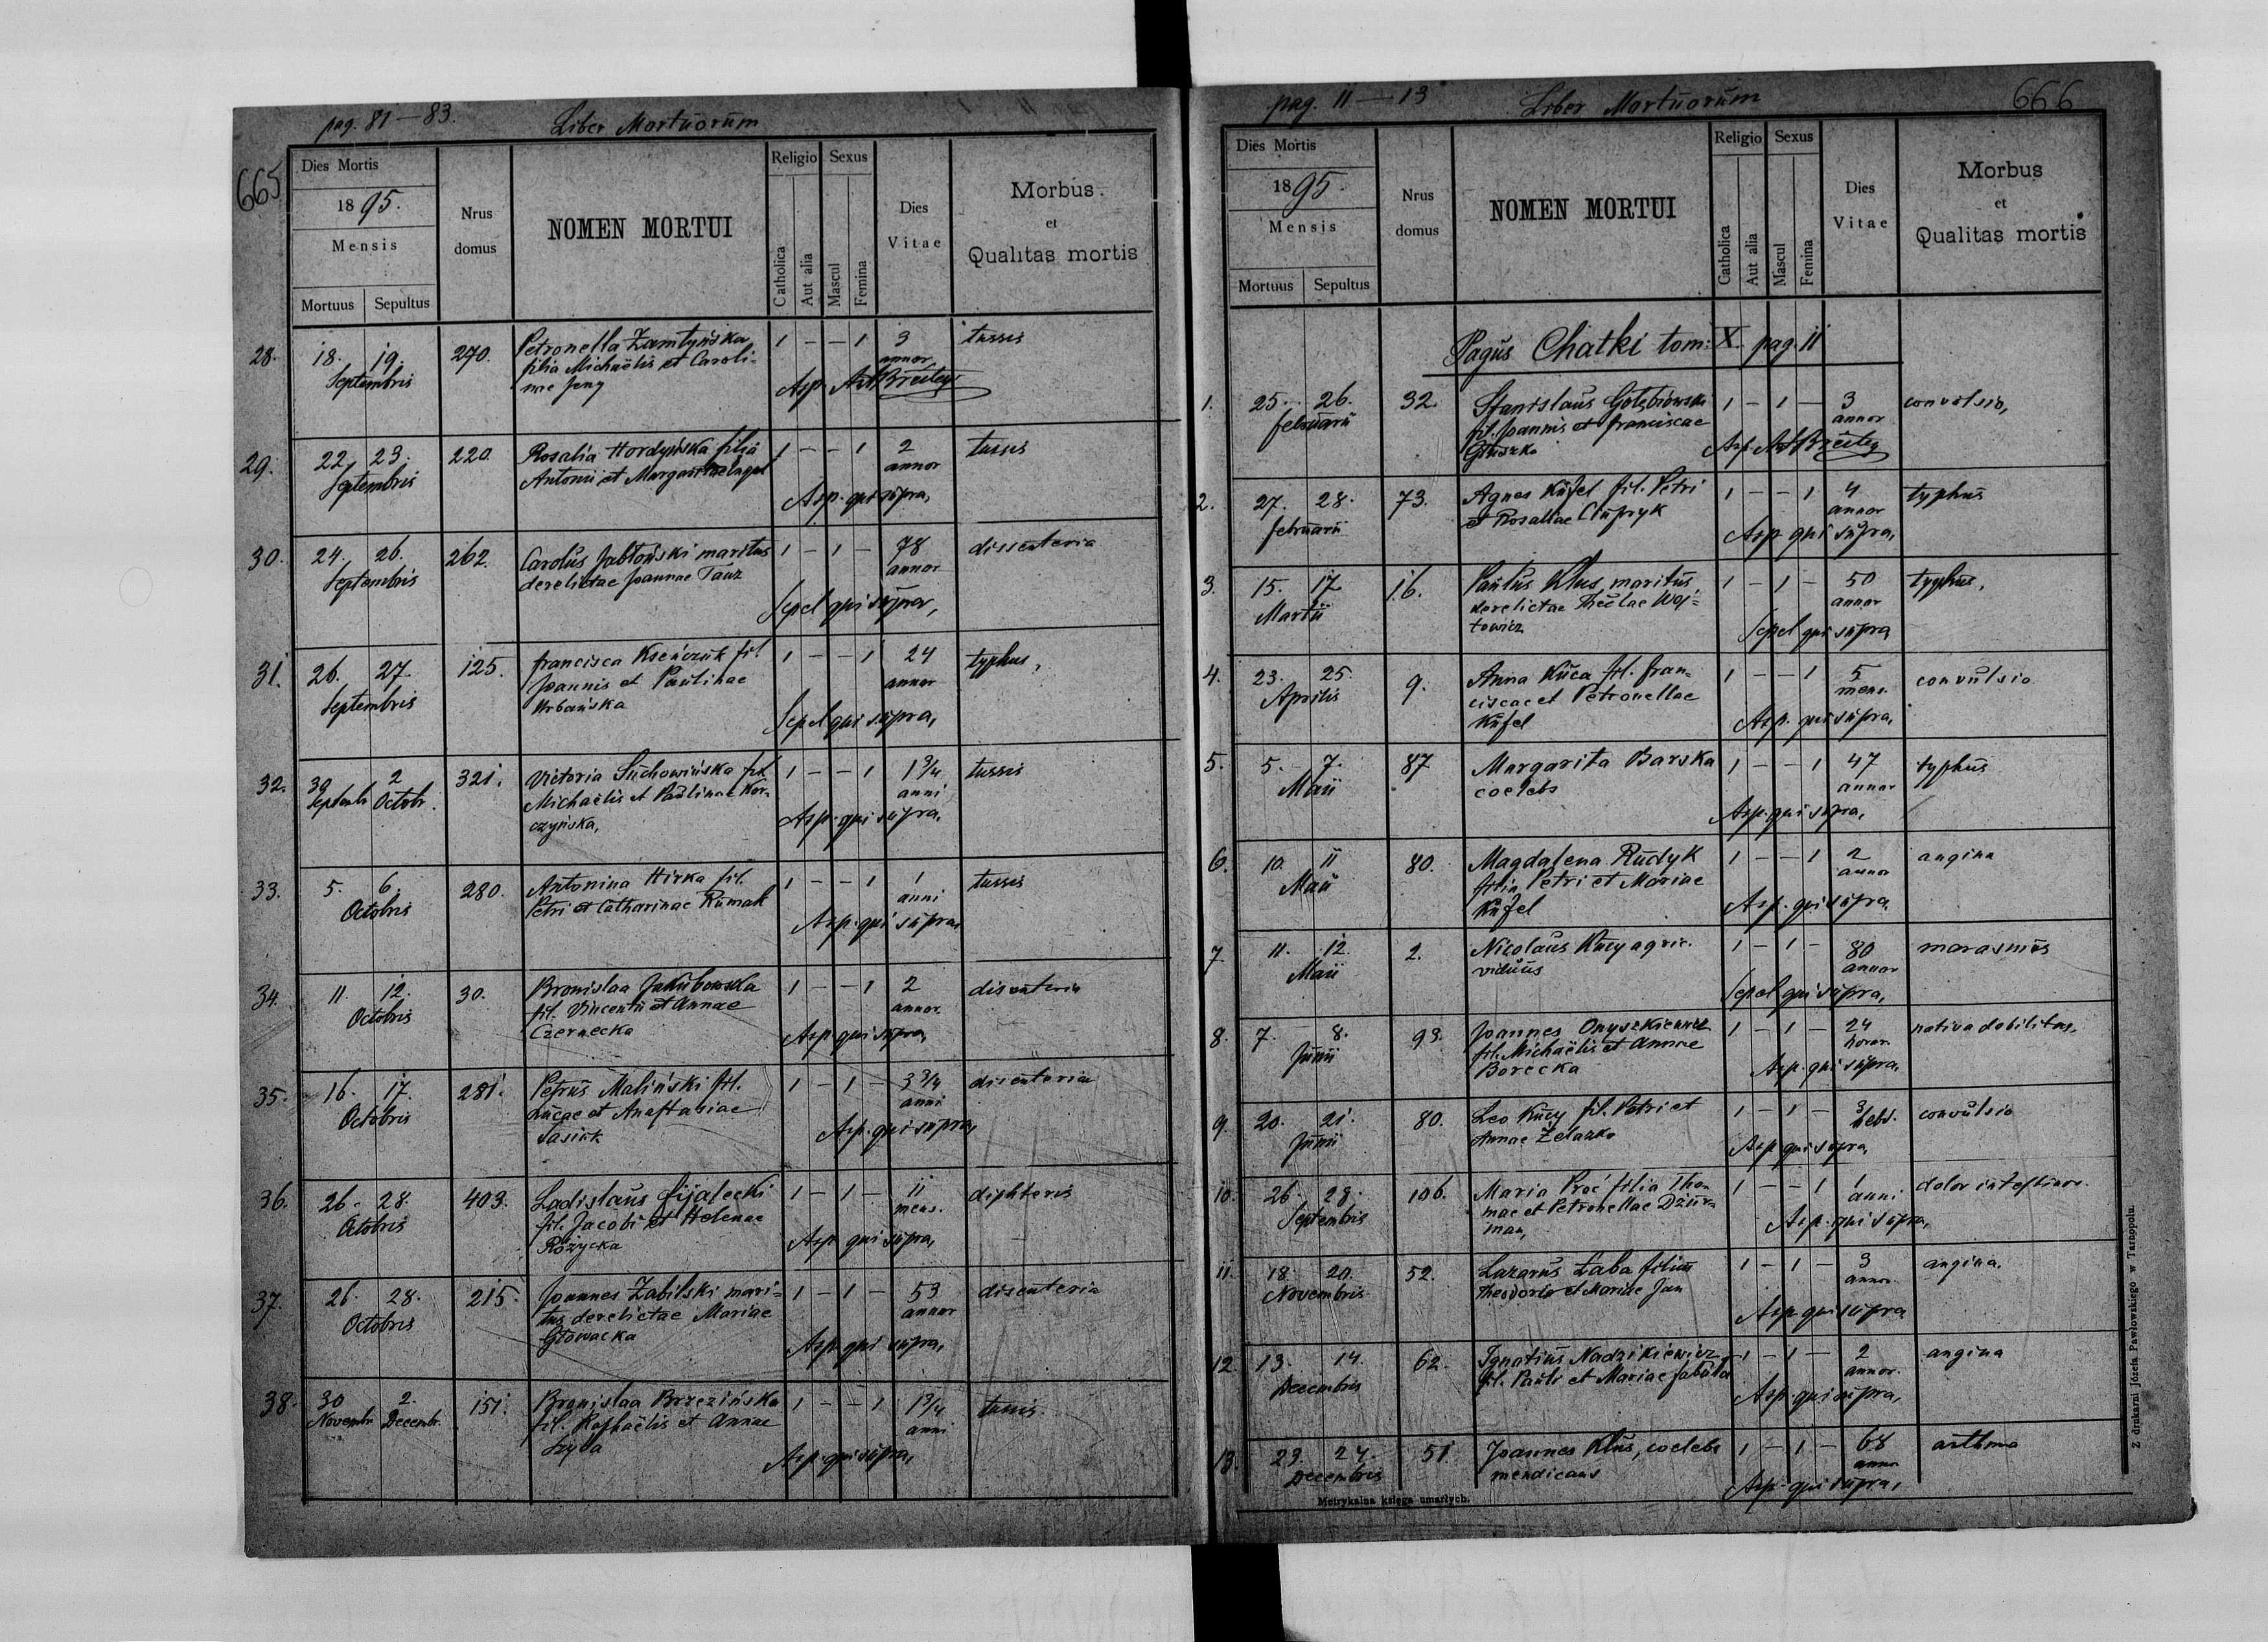 pag. 81 — 83.
Liber Mortuorum
665
Dies Mortis
1895.
Mensis
Mortuus Sepultus
Nrus domus
NOMEN MORTUI
Religio
Catholica
Aut alia
Sexus
Mascul
Femina
Dies Vitae
Morbus
et
Qualitas mortis
28. 18. 19. 270. Petronella Zamtyńska 1 — — 1 3 tussis
Septembris filia Michaëlis et Caroli- annor
nae Jeny Asp. Ant Breitey
29. 22. 23. 220. Rosalia Hordyńska filia 1 — — 1 2 tussis
Septembris Antonii et Margar annor
Asp. qui supra,
30. 24. 26. 262. Carolus Jabłoński maritus 1 — 1 — 78 dissenteria
Septembris derelictae Joannae Tauz annor
Sepel qui supra,
31. 26. 27. 125. Francisca Kseńczuk fil. 1 — — 1 24 typhus,
Septembris Joannis et Paulinae annor
Urbańska
Sepel qui supra,
32. 30 2 321. Victoria Suchowińska fil. 1 — — 1 1 3/4 tussis
Septemb. Octobr. Michaëlis et Paulinae Kor- anni
czyńska, Asp. qui supra.
33. 5. 6. 280. Antonina Hirka fil. 1 — — 1 1 tussis
Octobris Petri et Catharinae Rumak anni
Asp. qui supra,
34. 11. 12. 30. Bronislaa Jakubowska 1 — — 1 2 disenteria
Octobris fil. Vincentii et Annae annor.
Czernecka Asp. qui supra,
35. 16. 17. 281. Petrus Maliński fil. 1 — 1 — 3 3/4 disenteria
Octobris Lucae et Anastasiae anni
Sasiek Asp. qui supra,
36. 26. 28. 403. Ladislaus Fijałecki 1 — 1 — 11 diphteris
Octobris fil. Jacobi et Helenae mens.
Różycka Asp. qui supra,
37. 26. 28. 215. Joannes Zabilski mari- 1 — 1 — 53 disenteria
Octobris tus derelictae Mariae annor
Głowacka Asp. qui supra,
38. 30 2. 151. Bronislaa Brzezińska 1 — — 1 1 3/4 tussis
Novembr. Decembr. fil. Raphaëlis et Annae anni
Szyba Asp. qui supra,
pag. 11 — 13
Liber Mortuorum
666
Dies Mortis
1895.
Mensis
Mortuus Sepultus
Nrus domus
NOMEN MORTUI
Religio
Catholica
Aut alia
Sexus
Mascul
Femina
Dies Vitae
Morbus
et
Qualitas mortis
Pagus Chatki tom: X. pag. 11
1. 25. 26. 32. Stanislaus Gołębiowski 1 — 1 — 3 convolsio,
februarii fil. Joannis et Franciscae annor
Głuszko Asp. Ant Breitey
2. 27. 28. 73. Agnes Kufel fil. Petri 1 — — 1 4 typhus
februarii et Rosaliae Cupryk annor
Asp. qui supra,
3. 15. 17 16. Paulus Klus maritus 1 — 1 — 50 typhus,
Martii derelictae Theclae Woj- annor
towicz Sepel qui supra
4. 23. 25. 9. Anna Kuca fil. Fran- 1 — — 1 5 convulsio
Aprilis ciscae et Petronellae mens.
Kufel Asp. qui supra,
5. 5. 7. 87 Margarita Barska 1 — — 1 47 typhus
Maii coelebs annor
Asp. qui supra,
6. 10. 11 80. Magdalena Rudyk 1 — — 1 2 angina
Maii filia Petri et Mariae annor
Kufel Asp. qui supra.
7 11. 12 2. Nicolaus Kucy agric. 1 — 1 — 80 marasmus
Maii viduus annor
Sepel qui supra,
8. 7. 8. 93. Joannes Onyszkiewicz 1 — 1 — 24 nativa debilitas,
Junii fil. Michaëlis et Annae horar.
Borecka Asp. qui supra,
9. 20. 21. 80. Leo Kucy fil. Petri et 1 — 1 — 3 convulsio
Junii Annae Żelazko hebd.
Asp. qui supra,
10. 26. 28. 106. Maria Proć filia Tho- 1 — — 1 1 dolor intestinor.
Septembris mae et Petronellae Dziur- anni
man, Asp. qui supra,
11. 18. 20. 52. Lazarus Łaba filius 1 — 1 — 3 angina.
Novembris Theodorii et Mariae Jan annor.
Asp. qui supra
12. 13. 14. 62. Ignatius Nadzikiewicz 1 — 1 — 2 angina
Decembris fil. Pauli et Mariae Fabula annor.
Asp. qui supra,
13. 23. 24. 51. Joannes Klus, coelebs 1 — 1 — 68 asthma
Decembris mendicans annor
Asp. qui supra,
Metrykalna księga umarłych.
Z drukarni Józefa Pawłowskiego w Tarnopolu.